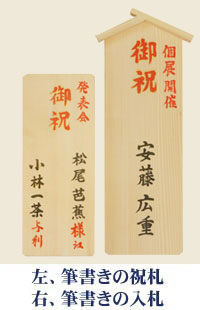 発表会
御祝
松尾芭蕉様江
小林一茶与利
個展開催
御祝
安藤広重
左、筆書きの祝札
右、筆書きの入札